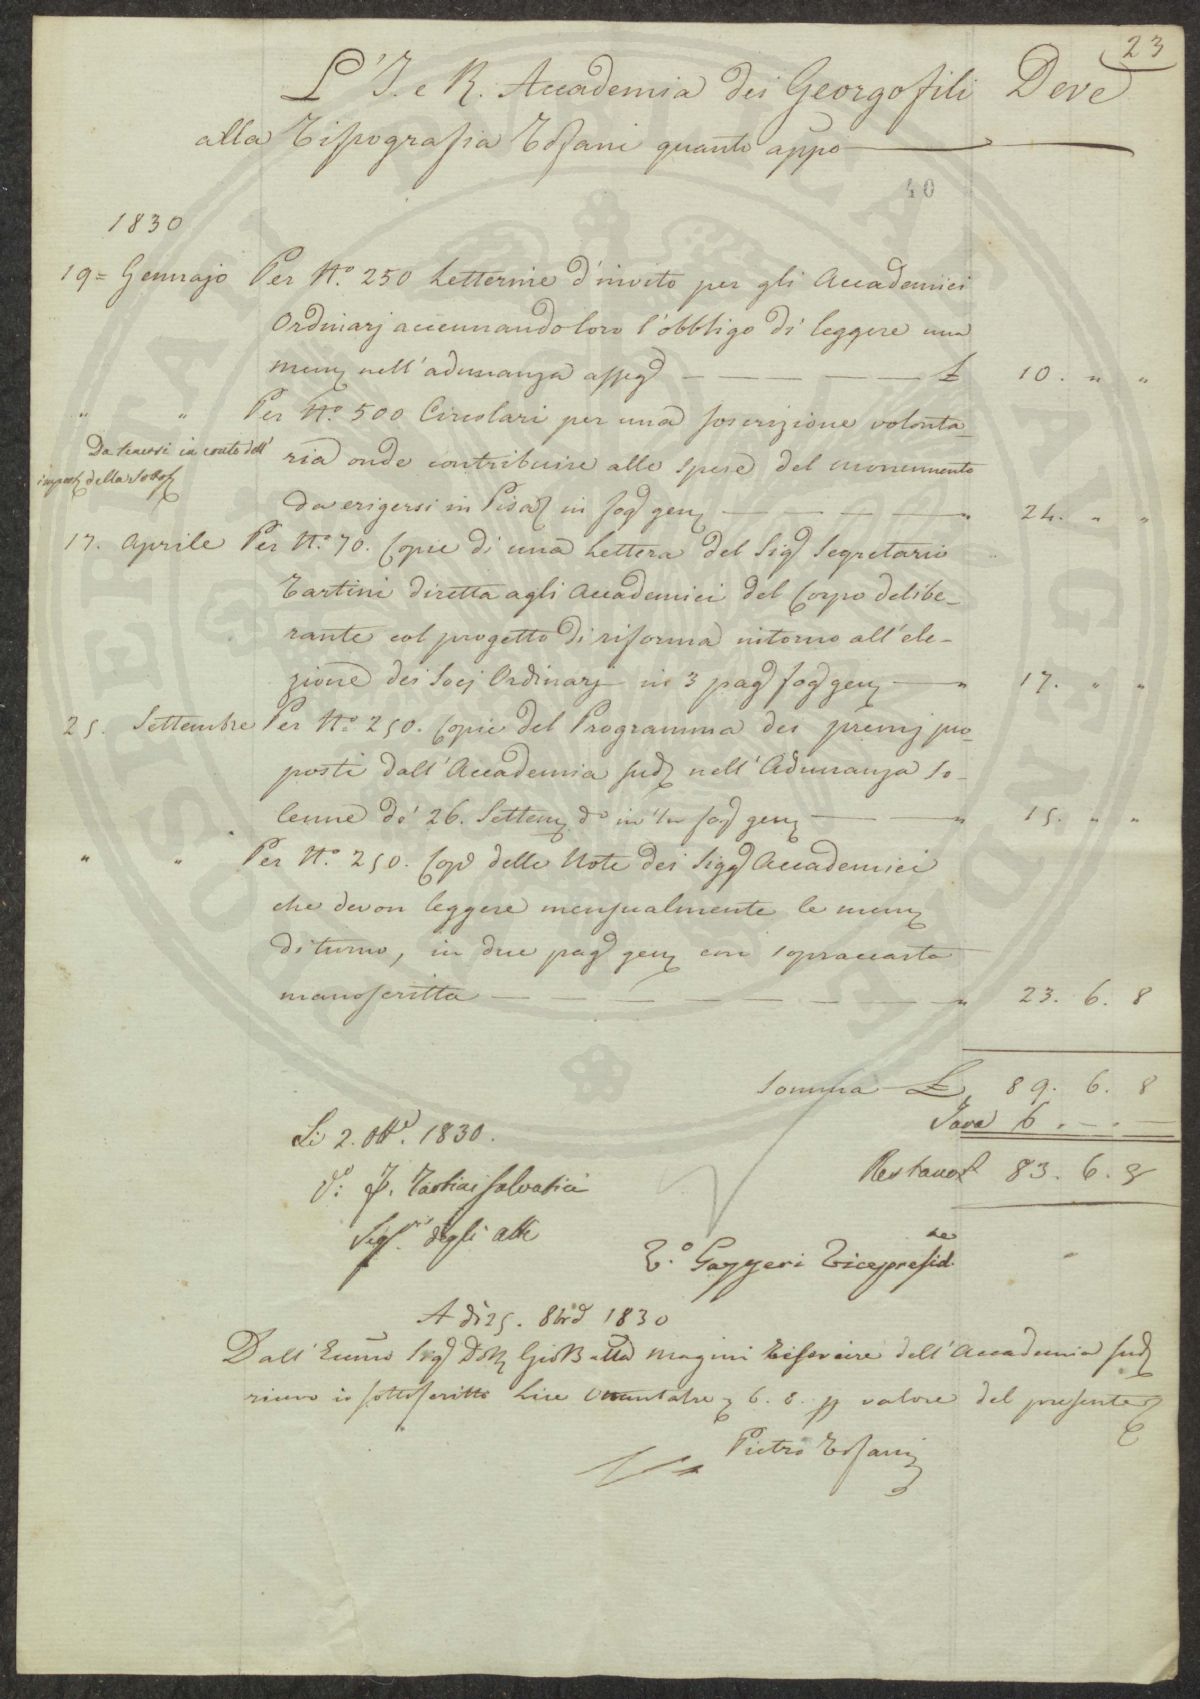 23
L'I. e R. Accademia dei Georgofili Deve
alla Tipografia Tofani quanto appo
40
1830
19= Gennajo Per N.° 250 Letterine d'invito per gli Accademici
Ordinarj accennando loro l'obbligo di leggere una
mem nell'adunanza asseg — £ 10. " "
" " Per N.° 500 Circolari per una soscrizione volonta-
Da tenersi in conto dell'
ria onde contribuire alle spese del monumento
import della
da erigersi in Pisa in fog gen — " 24. " "
17. Aprile Per N.° 70. Copie di una Lettera del Sig Segretario
Tartini diretta agli Accademici del Corpo delibe-
rante col progetto di riforma intorno all'ele-
zione dei Socj Ordinarj in 3 pag fog gen — " 17. " "
25. Settembre Per N.° 250. Copie del Programma dei premj pro-
posti dall'Accademia sud nell'Adunanza So-
lenne de' 26. Settem d° in fog gen — " 15. " "
" " Per N.° 250. Cop delle Note dei Sigg Accademici
che devon leggere mensualmente le mem
di turno, in due pag gen con sopraccarta
manoscritta — " 23. 6. 8
Somma £ 89. 6. 8
Tara 6. -. -
Restano £ 83. 6. 8
Li 2. Ott. 1830.
V.° F. Tartini Salvatici
Seg.rio degli atti
V.° Gazzeri Vicepresid.te
A dì 25. 8bre 1830
Dall'Ecc̃mo Sig Dott Gio Batta Magini Tesoriere dell'Accademia sud
ricevo io sottoscritto Lire Ottantatre 6. 8. p valore del presente
Pietro Tofani